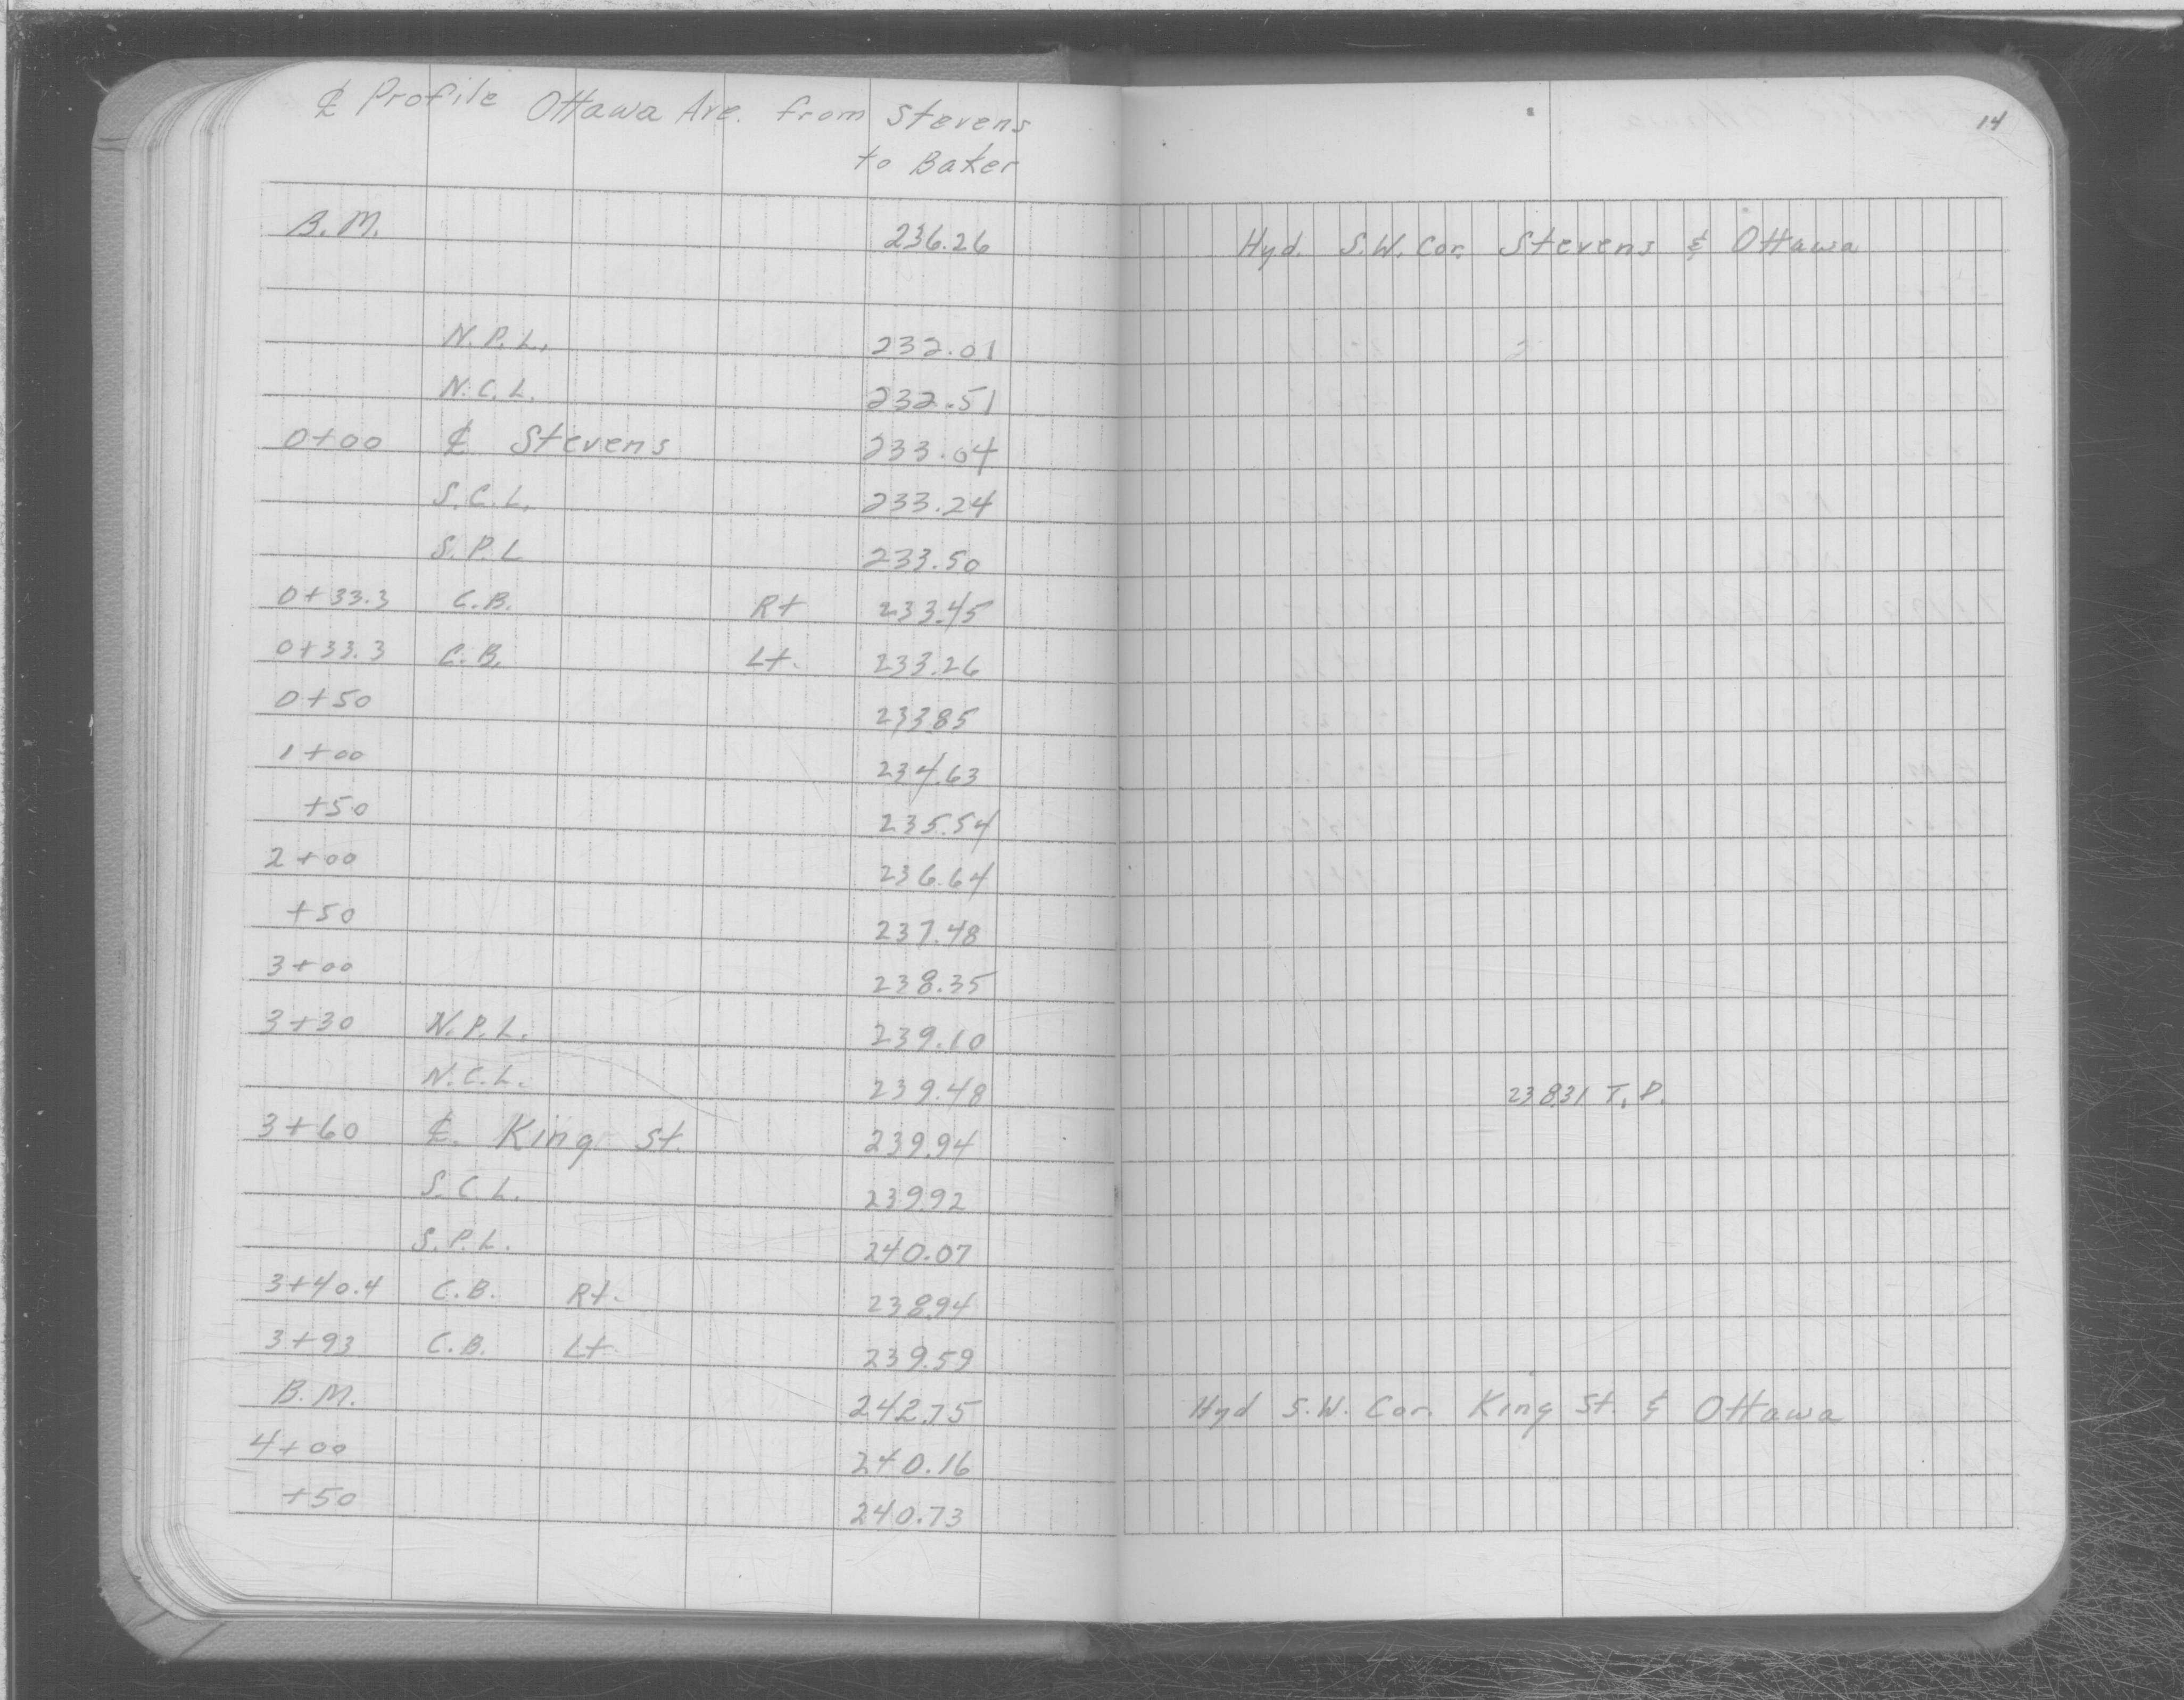 ℄ Profile Ottawa Ave. from Stevens
to Baker
14
B.M. 236.26 Hyd. S.W. Cor. Stevens & Ottawa
N.P.L. 232.01
N.C.L. 232.51
0+00 ℄ Stevens 233.04
S.C.L. 233.24
S.P.L 233.50
0+33.3 C.B. Rt 233.45
0+33.3 C.B. Lt. 233.26
0+50 233.85
1+00 234.63
+50 235.54
2+00 236.64
+50 237.48
3+00 238.35
3+30 N.P.L. 239.10
N.C.L. 239.48 238.31 T.P.
3+60 ℄. King St. 239.94
S.C.L. 239.92
S.P.L. 240.07
3+40.4 C.B. Rt. 238.94
3+93 C.B. Lt. 239.59
B.M. 242.75 Hyd S.W. Cor. King St. & Ottawa
4+00 240.16
+50 240.73